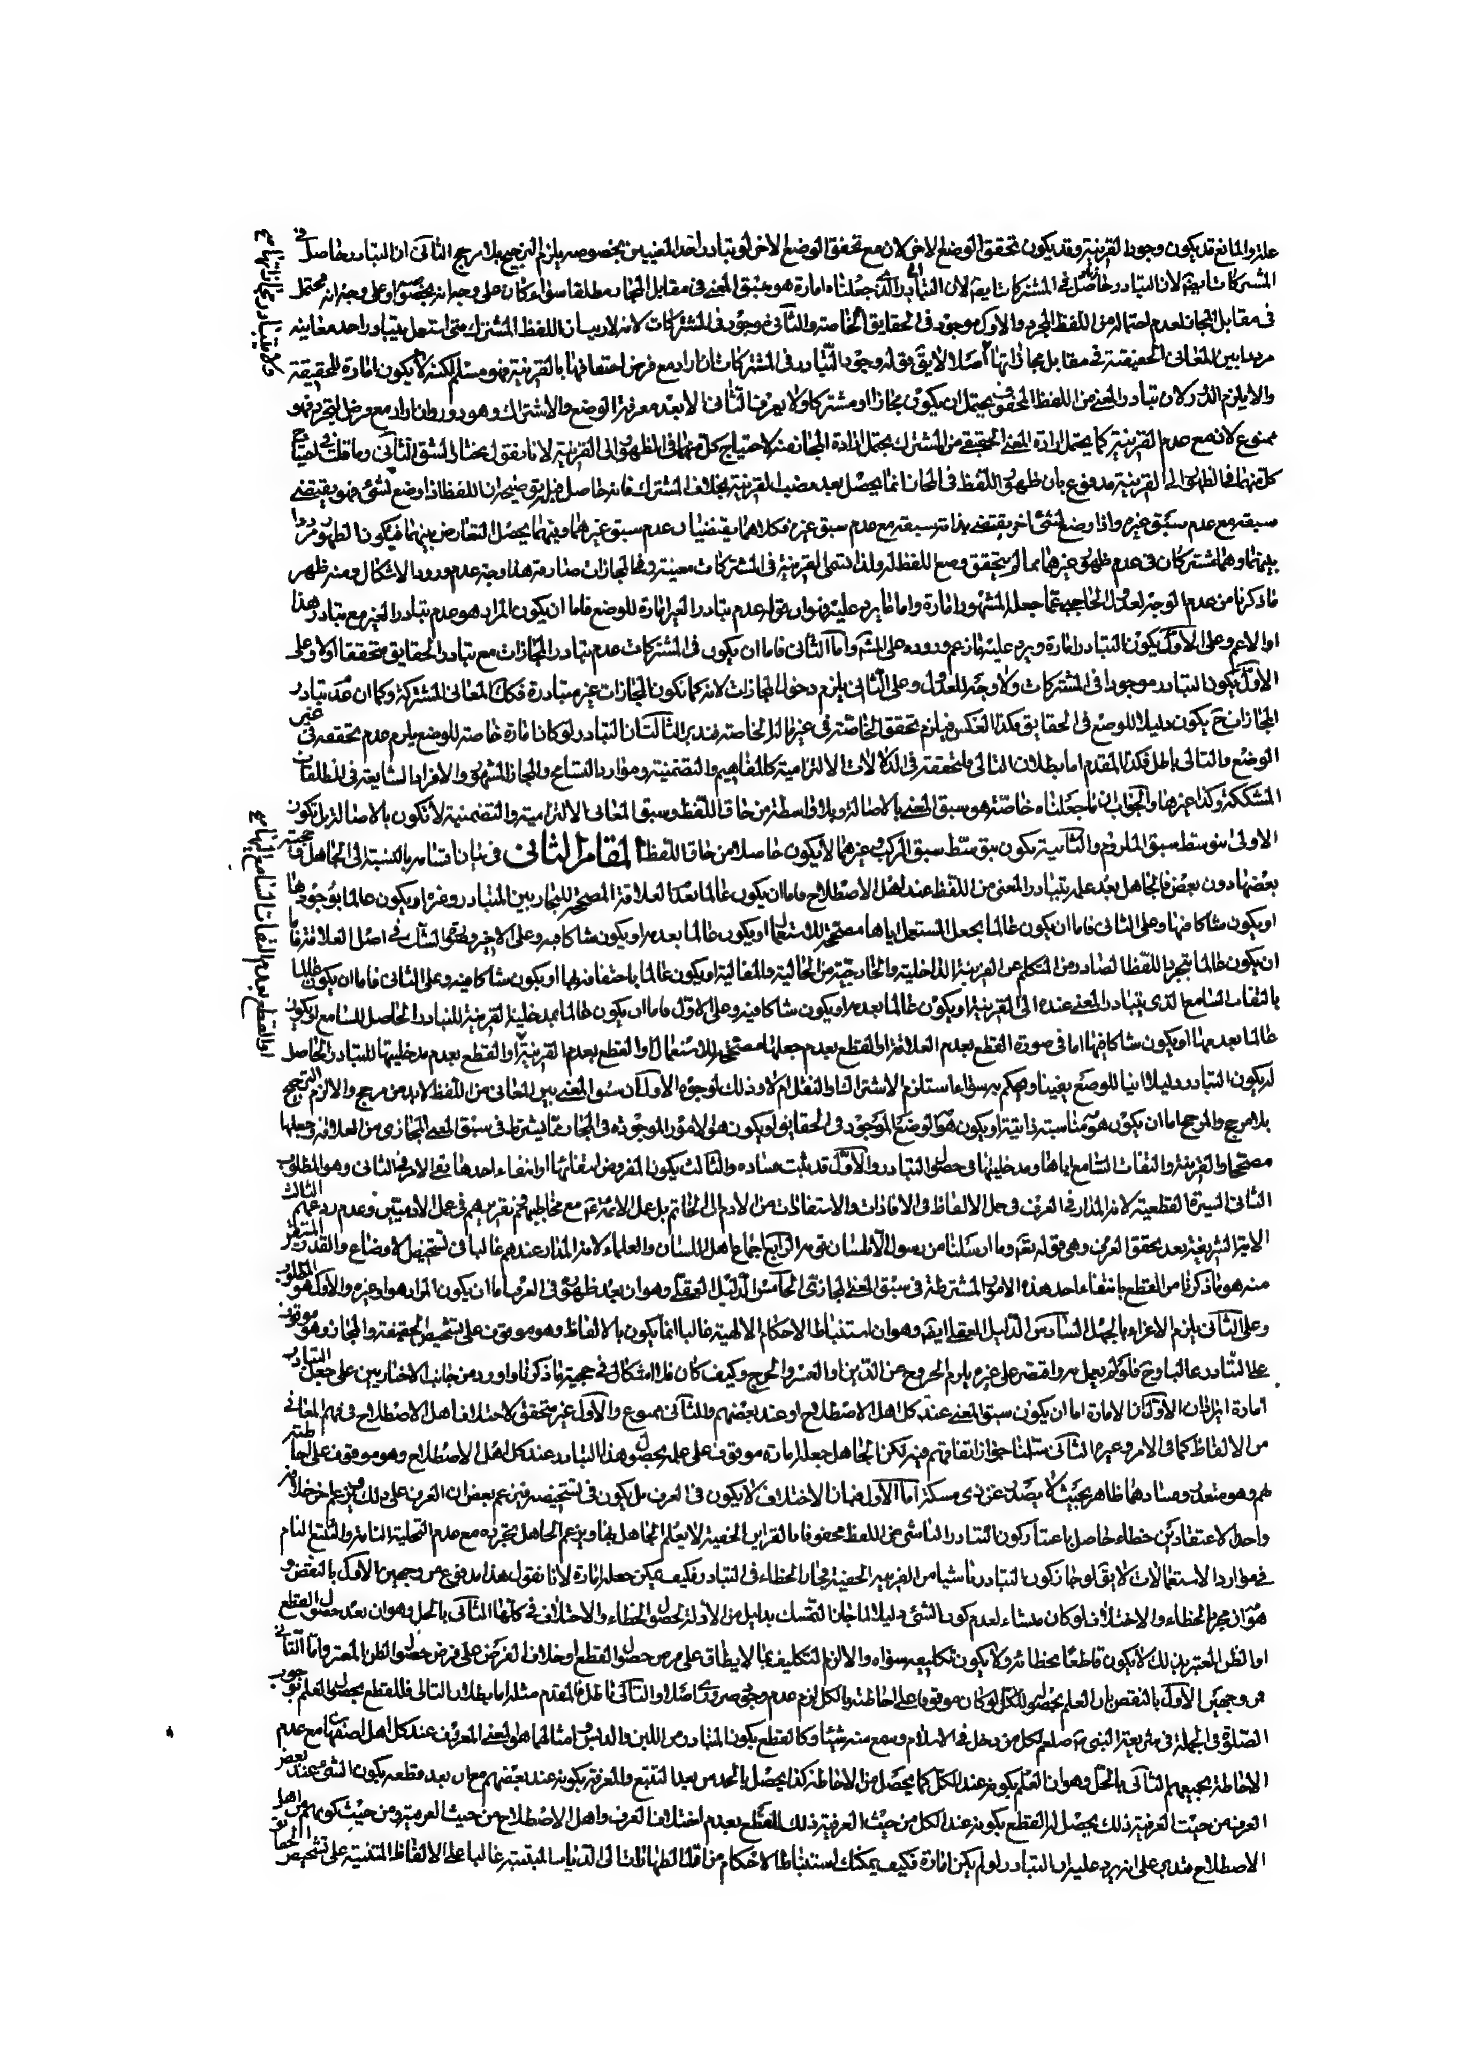 علة والمانع قد يكون وجود القرينة وقد يكون تحقق الوضع الاخر لان مع تحقق الوضع الاخر لو تبادر احد المعنيين بخصوصه يلزم الترجيح بلا مرجح الثالث ان التبادر حاصل في
المشتركات ايضا لان التبادر حاصل في المشتركات ايضا لان التبادر الذي جعلناه امارة هو سبق المعنى في مقابل المجاز مطلقا سواء كان على وجه انه بخصوصه او على وجه انه محتمل
في مقابل المجاز لعدم احتماله من اللفظ المجرد والاول موجود في الحقايق الخاصة والثاني موجود في المشتركات لانه لا ريب ان اللفظ المشترك متى استعمل يتبادر احد معانيه
مرددا بين المعاني الحقيقية في مقابل مجازاتها اصلا لا يق قوله وجود التبادر في المشتركات ان اراد مع فرض احتفافها بالقرينة فهو مسلم لكنه لا يكون امارة للحقيقة
والا يلزم الدور لان تبادر المعنى من اللفظ المحفوف يحتمل ان يكون مجازا او مشتركا ولا يعرف الثاني الا بعد معرفة الوضع والاشتراك وهو دور وان اراد مع فرض التجرد فهو
ممنوع لان مع عدم القرينة كما يحتمل ارادة المعنى الحقيقي من المشترك يحتمل ارادة المجاز منه لاحتياج كل منهما في الظهور الى القرينة لانا نقول نختار الشق الثاني وما قلت من احتياج
كل منهما في الظهور الى القرينة مدفوع بان ظهور اللفظ في المجاز انما يحصل بعد نصب القرينة بخلاف المشترك فانه حاصل قبل توضيحه ان اللفظ اذا وضع لشئ فهو يقتضي
سبقه مع عدم سبق غيره واذا وضع لشئ اخر يقتضي بذاته سبقه مع عدم سبق غيره فكلاهما يقتضيان عدم سبق غيرهما وفيهما يحصل التعارض بينهما فيكون الظهور مرددا
بينهما وهما مشتركان في عدم ظهور غيرهما مما لم يتحقق وضع اللفظ له ولذا تسمى القرينة في المشتركات معينة وفي المجازات صارفة هذا وجه عدم ورود الاشكال ومنه ظهر
ما ذكرنا من عدم الوجه لعدول الحاجبي عما جعله المشهور امارة واما ما يرد عليه فهو ان قوله عدم تبادر الغير امارة للوضع فاما ان يكون المراد هو عدم تبادر الغير مع تبادر هذا
او الاعم وعلى الاول يكون التبادر امارة ويرد عليه ما زعم وروده على المشهور واما الثاني فاما ان يكون في المشتركات عدم تبادر المجازات مع تبادر الحقايق متحققا اولا وعلى
الاول يكون التبادر موجودا في المشتركات ولا وجه للعدول وعلى الثاني يلزم دخول المجازات لانه كما تكون المجازات غير متبادرة فكذا المعاني المشتركة وكما ان عدم تبادر
المجازات ح يكون دليلا للوضع في الحقايق فكذا العكس فيلزم تحقق الخاصة في غير ما له الخاصة فتدبر الثالث ان التبادر لو كان امارة خاصة للوضع يلزم عدم تحققه في غير
الوضع والتالي باطل فكذا المقدم اما بطلان التالي فلتحققه في الدلالات الالتزامية كالمفاهيم والتضمنية وموارد التسامح والمجاز المشهور والافراد الشايعة في المطلقات
المشككة وكذا غيرها والجواب ان ما جعلناه خاصة هو سبق المعنى بالاصالة وبلا واسطة من حاق اللفظ وسبق المعاني الالتزامية والتضمنية لا تكون بالاصالة بل تكون
الاولى بتوسط سبق الملزوم والثانية تكون بتوسط سبق المركب وغيرهما لا يكون حاصلا من حاق اللفظ المقام الثاني في بيان اقسامه بالنسبة الى الجاهل وحجية
بعضها دون بعض فالجاهل بعد علمه بتبادر المعنى من اللفظ عند اهل الاصطلاح فاما ان يكون عالما بعدم العلاقة المصححة للتجاوز بين المتبادر وغيره او يكون عالما بوجودها
او يكون شاكا فيها وعلى الثاني فاما ان يكون عالما بجعل المستعمل اياها مصححة للاستعمال او يكون عالما بعدمه او يكون شاكا فيه وعلى الاخير وعلى الشك في اصل العلاقة فاما
ان يكون عالما بتجرد اللفظ الصادر من المتكلم عن القرينة الداخلية والخارجية من الحالية والمقالية او يكون عالما باحتفافه بها او يكون شاكا فيه وعلى الثاني فاما ان يكون عالما
بالتفات السامع الذي يتبادر المعنى عنده الى القرينة او يكون عالما بعدمه او يكون شاكا فيه وعلى الاول فاما ان يكون عالما بمدخلية القرينة للتبادر الحاصل للسامع او يكون
عالما بعدمها او يكون شاكا فيها اما في صورة القطع بعدم العلاقة او القطع بعدم جعلها مصححة للاستعمال او القطع بعدم القرينة او القطع بعدم مدخليتها للتبادر الحاصل
له يكون التبادر دليلا انيا للوضع يقينا ويحكم به سواء استلزم الاشتراك او النقل ام لا وذلك لوجوه الاول ان سبق المعنى بين المعاني من اللفظ لا بد من مرجح والا لزم الترجيح
بلا مرجح والمرجح اما ان يكون هو مناسبة ذاتية او يكون هو الوضع الموجود في الحقايق او يكون هو الامور الموجودة في المجاز مما يشترط في سبق المعنى المجازي من العلاقة وجعلها
مصححا والقرينة والتفات السامع اياها ومدخليتها في حصول التبادر والاول قد ثبت فساده والثالث يكون المفروض انتفائها او انتفاء احدها بقى الامر في الثاني وهو المطلوب
الثاني السيرة القطعية لانه المدار في العرف في حمل الالفاظ في الافادات والاستفادات من الادم الى الخاتم بل عمل الائمة ع مع مخاطبيهم وتقريرهم في عمل الادميين وعدم ردعهم الثالث
الاية الشريفة بعد تحقق العرف وهي قوله تعالى وما ارسلنا من رسول الا بلسان قومه الرابع اجماع اهل اللسان والعلماء لانه المدار عندهم غالبا في تشخيص الاوضاع والقدر المتيقن
منه هو ما ذكرنا من القطع بانتفاء احد هذه الامور المشترطة في سبق المعنى المجازي الخامس الدليل العقلي وهو ان بعد ظهوره في العرف اما ان يكون المراد هو او غيره والاول هو المطلوب
وعلى الثاني يلزم الاغراء بالجهل السادس الدليل العقلي ايضا وهو ان استنباط الاحكام الالهية غالبا انما يكون بالالفاظ وهو موقوف على تشخيص الحقيقة والمجاز وهو موقوف
على التبادر غالبا وح فلو لم يعمل به واقتصر على غيره يلزم الخروج عن الدين او العسر والحرج وكيف كان فلا اشكال في حجية ما ذكرنا واورد من جانب الاخباريين على جعل التبادر
امارة ايرادان الاول ان الامارة اما ان يكون سبق المعنى عند كل اهل الاصطلاح او عند بعضهم والثاني ممنوع والاول غير متحقق لاختلاف اهل الاصطلاح في فهم المعاني
من الالفاظ كما في الامر وغيره الثاني سلمنا جواز اتفاقهم فيه لكن الجاهل جعله امارة موقوف على علمه بحصول هذا التبادر عند كل اهل الاصطلاح وهو موقوف على احاطته
بهم وهو متعذر وفسادهما ظاهر بحيث لا يصدر عن ذي مسكة اما الاول فبان الاختلاف لا يكون في العرف بل يكون في تشخيصه فيزعم بعض ان العرف على ذلك ويزعم اخر خلافه
واحد الاعتقادين خطاء حاصل باعتبار كون التبادر الناشي عن اللفظ محفوفا بالقراين الخفية لا يعلم الجاهل بها ويزعم الجاهل تجرده مع عدم التخلية التامة والتتبع التام
في موارد الاستعمالات لا يق لو جاز كون التبادر ناشيا من القرينة الخفية فجاز الخطاء في التبادر فكيف يمكن جعله امارة لانا نقول هذا مدفوع من وجهين الاول بالنقض و
هو ان مجرد الخطاء والاختلاف لو كان منشاء لعدم كون الشئ دليلا لما جاز لنا التمسك بدليل من الادلة لحصول الخطاء والاختلاف في كلها الثاني بالحل وهو ان بعد حصول القطع
او الظن المعتبر بذلك لا يكون قاطعا بخطائه ولا يكون تكليفه سواه والا لزم التكليف بما لا يطاق على فرض حصول القطع او خلاف الفرض على فرض حصول الظن المعتبر واما الثاني
فمن وجهين الاول بالنقض بان العلم بحصوله للكل لو كان موقوفا على احاطته بالكل لزم عدم وجود ضروري اصلا والتالي باطل فالمقدم مثله اما بطلان التالي فللقطع بحصول العلم بوجوب
الصلوة في الجملة في شريعة النبي ص صلعم لكل من دخل في الاسلام وسمع منه شيئا وكالقطع بكون المتبادر من اللبن والدبس وامثالهما هو المعنى المعروف عند كل اهل لصنفها مع عدم
الاحاطة بجميعهم الثاني بالحل وهو ان العلم بكونه عند الكل كما يحصل من الاحاطة كذا يحصل بالحدس بعد التتبع والمعرفة بكونه عند بعضهم معان بعد قطعه بكون الشئ عند بعض
العرف من حيث العرفية ذلك يحصل له القطع بكونه عند الكل من حيث العرفية ذلك للقطع بعدم اختلاف العرف واهل الاصطلاح من حيث العرفية ومن حيث كونهم من اهل
الاصطلاح فتدبر على انه يرد عليه ان التبادر لو لم يكن امارة فكيف يمكنك استنباط الاحكام من اول الطهارات الى الديات المبتنية غالبا على الالفاظ المبتنية على تشخيص الحقايق
فلا يتبادر مجازاتها صح
او القطع بعدم التفات السامع اليها صح